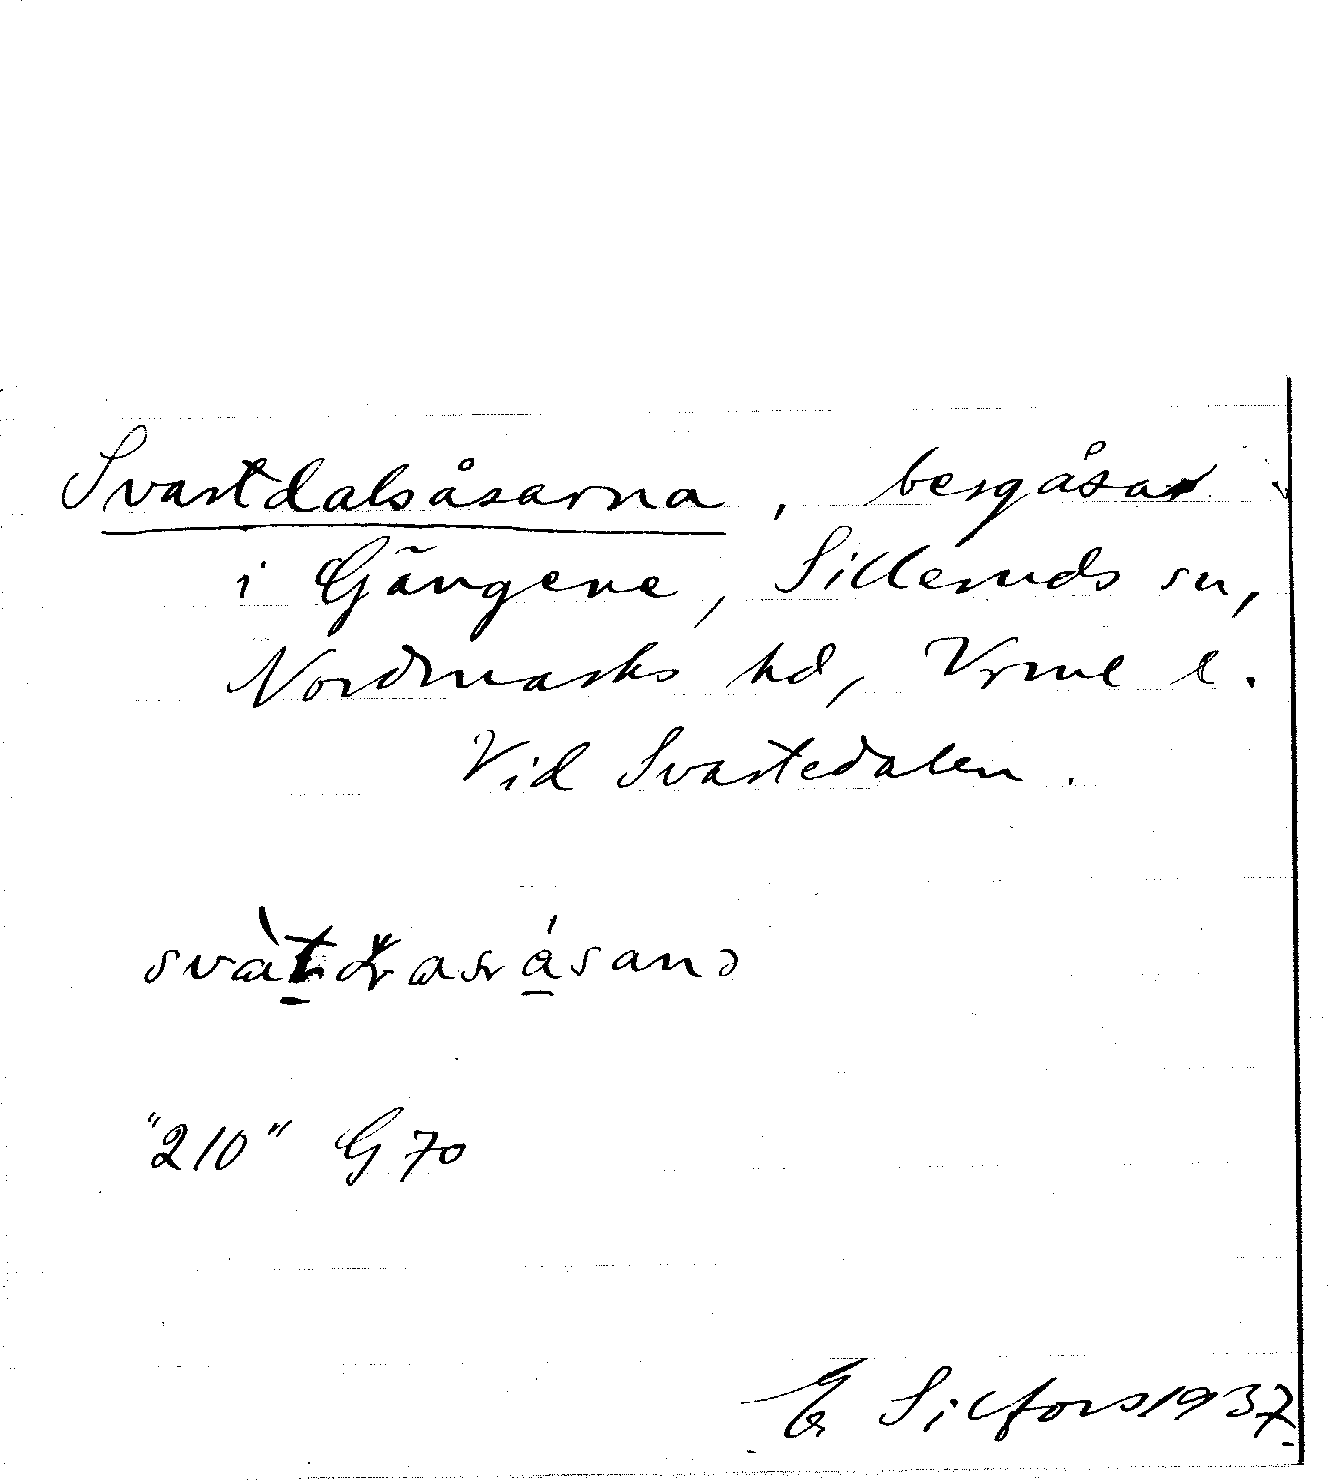 Svartdalsåsarna, bergåsar
i Gängene, Silleruds sn,
Nordmarks hd, Vrml l.
Vid Svartedalen.
"210" G 70
E Silfors 1937